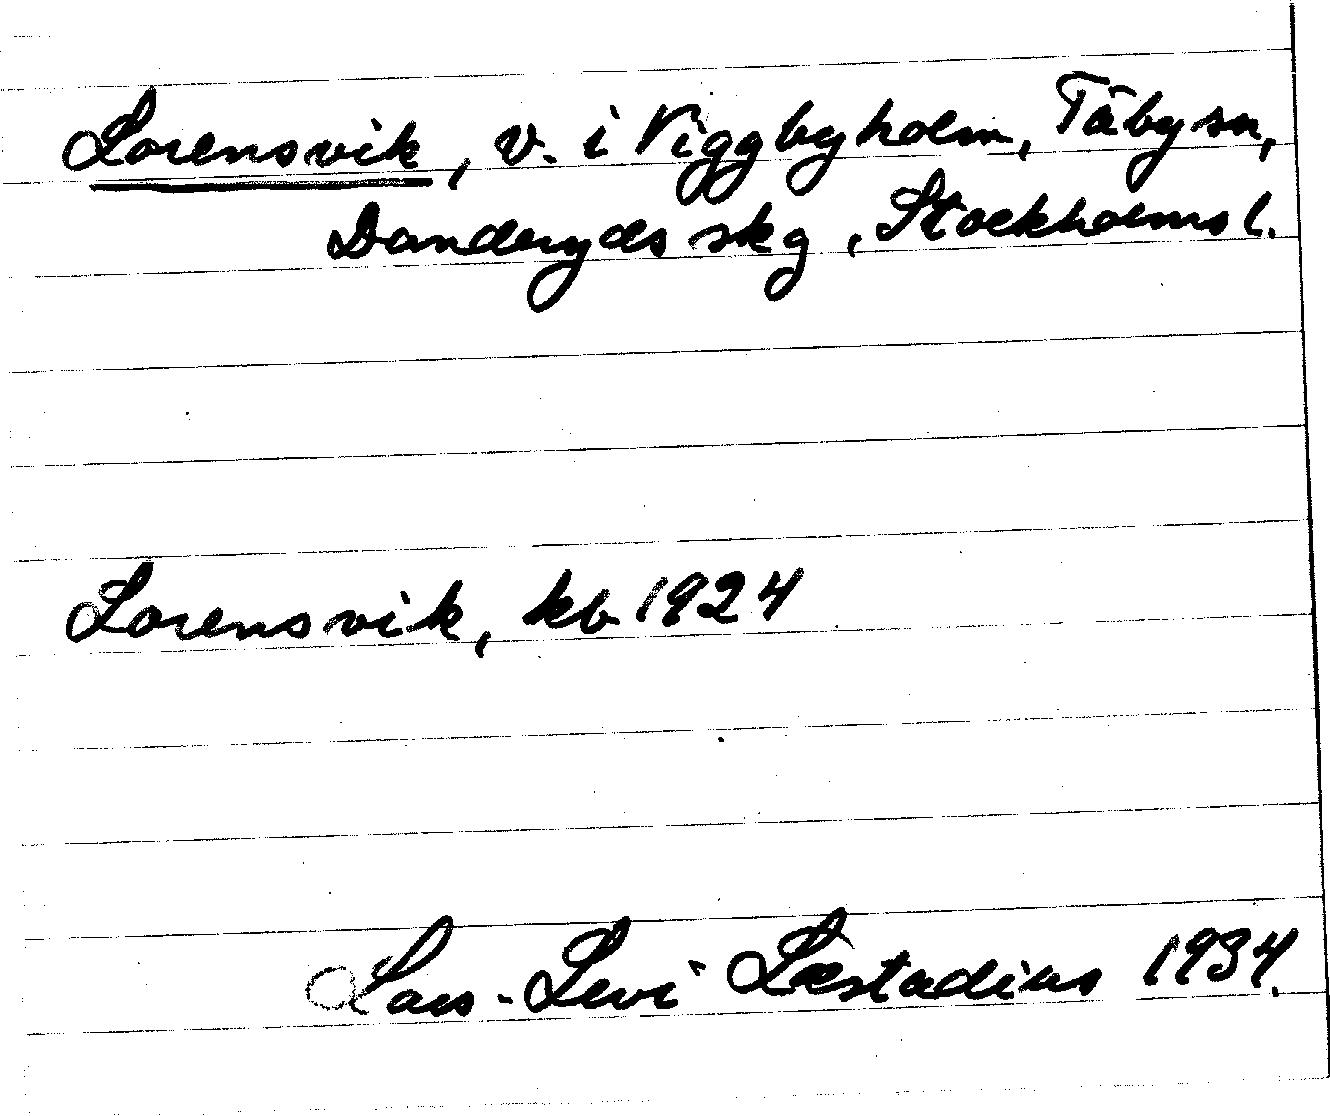 Lorensvik, v. i Viggbyholm, Täby sn,
Danderyds skg, Stockholms l.
Lorensvik, kb 1924
Lars-Levi Læstadius 1934.